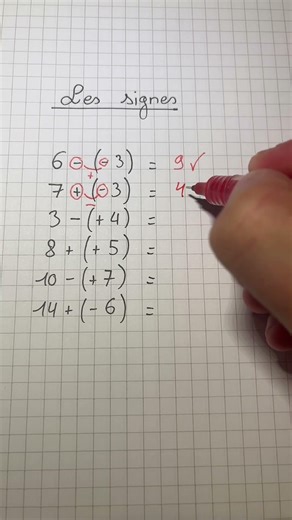 Les signes
6 - (- 3) = 9 ✓
+
7 + (- 3) = 4
-
3 - (+ 4) =
8 + (+ 5) =
10 - (+ 7) =
14 + (- 6) =